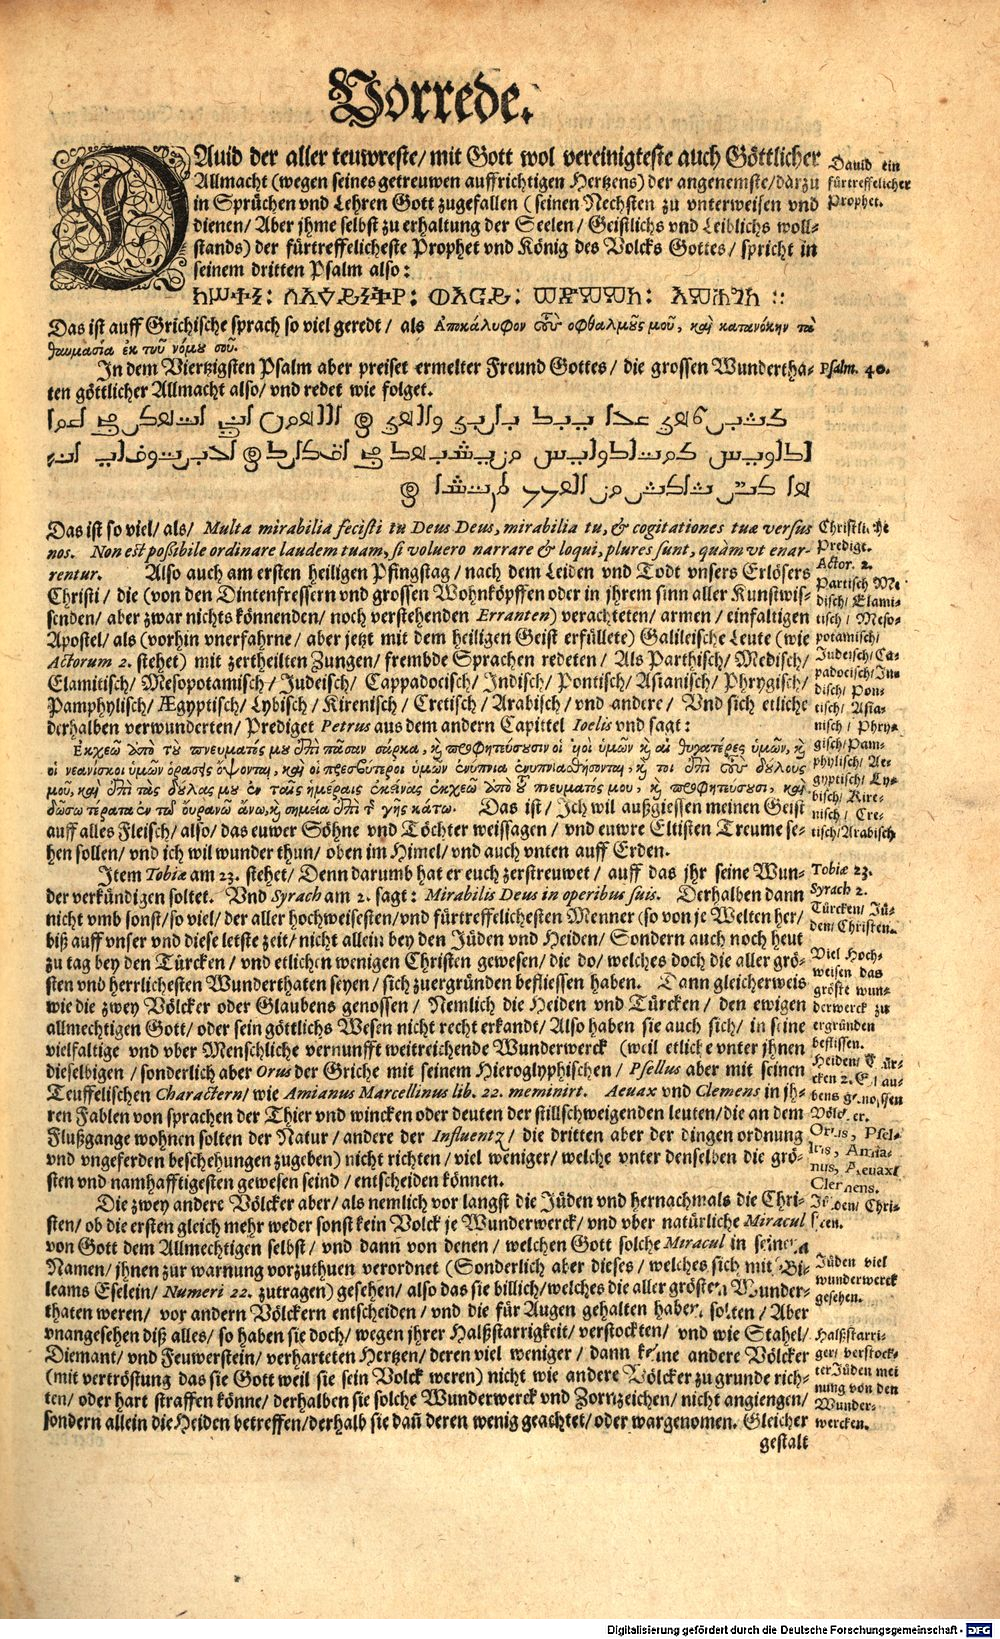 Vorrede.
DAuid der aller teuwreste/ mit Gott wol vereinigteste auch Göttlicher
Allmacht (wegen seines getreuwen auffrichtigen Hertzens) der angenemste/ darzu
in Sprüchen vnd Lehren Gott zugefallen (seinen Nechsten zu vnterweisen vnd
dienen/ Aber jhme selbst zu erhaltung der Seelen/ Geistlichs vnd Leiblichs woll-
stands) der fürtreffelicheste Prophet vnd König des Volcks Gottes/ spricht in
seinem dritten Psalm also:
Dauid ein
fürtreffelicher
Prophet.
Das ist auff Grichische sprach so viel geredt/ als Ἀποκάλυφον τοὺς οφθαλμȣ́ς μοῦ, καὶ κατανόκην τὰ
θαυμασία ἐκ τοῦ νόμȣ σοῦ.
In dem Viertzigsten Psalm aber preiset ermelter Freund Gottes/ die grossen Wundertha-
ten göttlicher Allmacht also/ vnd redet wie folget.
Psalm. 40.
Das ist so viel/ als/ Multa mirabilia fecisti tu Deus Deus, mirabilia tu, & cogitationes tuæ versus
nos. Non est poßibile ordinare laudem tuam, si voluero narrare & loqui, plures sunt, quàm vt enar-
rentur. Also auch am ersten heiligen Pfingstag/ nach dem Leiden vnd Todt vnsers Erlösers
Christi/ die (von den Dintenfressern vnd grossen Wohnköpffen oder in jhrem sinn aller Kunstwis-
senden/ aber zwar nichts könnenden/ noch verstehenden Erranten) verachteten/ armen/ einfaltigen
Apostel/ als (vorhin vnerfahrne/ aber jetzt mit dem heiligen Geist erfüllete) Galileische Leute (wie
Actorum 2. stehet) mit zertheilten Zungen/ frembde Sprachen redeten/ Als Parthisch/ Medisch/
Elamitisch/ Mesopotamisch/ Judeisch/ Cappadocisch/ Indisch/ Pontisch/ Asianisch/ Phrygisch/
Pamphylisch/ Ægyptisch/ Lybisch/ Kirenisch/ Cretisch/ Arabisch/ vnd andere/ Vnd sich etliche
derhalben verwunderten/ Prediget Petrus aus dem andern Capittel Ioelis vnd sagt:
Ἐκχεῶ ἀπὸ τȣ πνευματός μȣ ἐπὶ πᾶσαν σάρκα, καὶ προφητεύσουσιν οἱ ὑοὶ ὑμῶν καὶ αἱ θυγατέρες ὑμῶν, καὶ
οἱ νεανίσκοι ὑμῶν ὁράσης ὄψονται, καὶ οἱ πρεσβύτεροι ὑμῶν ἐνύπνια ἐνυπνιαθήσονται, καὶ τοι ἐπὶ τοὺς δύλους
μοῦ, καὶ ἐπὶ τὰς δύλας μȣ ἐν ταῖς ἡμέραις ἐκείνας ἐκχεῶ ἀπὸ τȣ͂ πνευματός μου, καὶ προφητεύσουσι, καὶ
δώσω τέρατα ἐν τῷ ȣ̓ρανῷ ἄνω, καὶ σημεῖα ἐπὶ τ͂ γῆς κάτω. Das ist/ Ich wil außgiessen meinen Geist
auff alles Fleisch/ also/ das euwer Söhne vnd Töchter weissagen/ vnd euwre Eltisten Treume se-
hen sollen/ vnd ich wil wunder thun/ oben im Himel/ vnd auch vnten auff Erden.
Christliche
Predigt.
Actor. 2.
Partisch Me
disch/ Elami-
tisch/ Meso-
potamisch/
Judeisch/ Ca-
padocisch/ In-
disch/ Pon-
tisch/ Asia-
nisch/ Phry-
gisch/ Pam-
phylisch/ Ae-
gyptisch/ Ly-
bisch/ Kire-
nisch/ Cre-
tisch/ Arabisch
Item Tobiæ am 23. stehet/ Denn darumb hat er euch zerstreuwet/ auff das jhr seine Wun-
der verkündigen soltet. Vnd Syrach am 2. sagt: Mirabilis Deus in operibus suis. Derhalben dann
nicht vmb sonst/ so viel/ der aller hochweisesten/ vnd fürtreffelichesten Menner (so von je Welten her/
biß auff vnser vnd diese letste zeit/ nicht allein bey den Jüden vnd Heiden/ Sondern auch noch heut
zu tag bey den Türcken/ vnd etlichen wenigen Christen gewesen/ die do/ welches doch die aller grö-
sten vnd herrlichesten Wunderthaten seyen/ sich zuergründen beflissen haben. Dann gleicherweis
wie die zwey Völcker oder Glaubens genossen/ Nemlich die Heiden vnd Türcken/ den ewigen
allmechtigen Gott/ oder sein göttlichs Wesen nicht recht erkandt/ Also haben sie auch sich/ in seine
vielfaltige vnd vber Menschliche vernunfft weitreichende Wunderwerck (weil etliche vnter jhnen
dieselbigen/ sonderlich aber Orus der Griche mit seinem Hieroglyphischen/ Psellus aber mit seinen
Teuffelischen Charactern/ wie Amianus Marcellinus lib. 22. meminirt. Aeuax vnd Clemens in jh-
ren Fablen von sprachen der Thier vnd wincken oder deuten der stillschweigenden leuten/ die an dem
Flußgange wohnen solten der Natur/ andere der Influentz/ die dritten aber der dingen ordnung
vnd vngeferden beschehungen zugeben) nicht richten/ viel weniger/ welche vnter denselben die grö-
sten vnd namhafftigesten gewesen seind/ entscheiden können.
Tobiæ 23.
Syrach 2.
Türcken/ Jü-
den/ Christen.
Viel Hoch-
weisen das
gröste wun-
derwerck zu
ergründen
beflissen.
Heiden/ Tür-
cken 2. Glau-
bens genossen
Völcker.
Orus, Psel-
lus, Amia-
nus, Aeuax/
Clemens.
Die zwey andere Völcker aber/ als nemlich vor langst die Jüden vnd hernachmals die Chri-
sten/ ob die ersten gleich mehr weder sonst kein Volck je Wunderwerck/ vnd vber natürliche Miracul
von Gott dem Allmechtigen selbst/ vnd dann von denen/ welchen Gott solche Miracul in seinem
Namen/ jhnen zur warnung vorzuthuen verordnet (Sonderlich aber dieses/ welches sich mit Bi-
leams Eselein/ Numeri 22. zutragen) gesehen/ also das sie billich/ welches die aller grösten Wunder-
thaten weren/ vor andern Völckern entscheiden/ vnd die für Augen gehalten haben solten/ Aber
vnangesehen diß alles/ so haben sie doch/ wegen jhrer Halßstarrigkeit/ verstockten/ vnd wie Stahel/
Diemant/ vnd Feuwerstein/ verharteten Hertzen/ deren viel weniger/ dann keine andere Völcker
(mit vertröstung das sie Gott weil sie sein Volck weren) nicht wie andere Völcker zu grunde rich-
ten/ oder hart straffen könne/ derhalben sie solche Wunderwerck vnd Zornzeichen/ nicht angiengen/
sondern allein die Heiden betreffen/ derhalb sie dañ deren wenig geachtet/ oder wargenomen. Gleicher
gestalt
Jüden/ Chri-
sten.
Jüden viel
wunderwerck
gesehen.
Halßstarri-
ger/ verstock-
ter Jüden mei
nung von den
Wunder-
wercken.
Digitalisierung gefördert durch die Deutsche Forschungsgemeinschaft - DFG